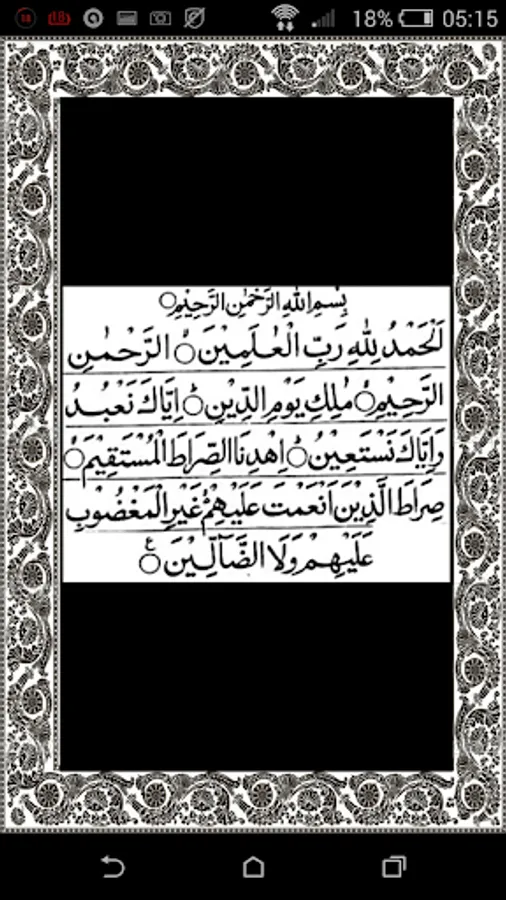 18% 05:15
بِسْمِ اللهِ الرَّحْمٰنِ الرَّحِيْمِ○
اَلْحَمْدُ لِلّٰهِ رَبِّ الْعٰلَمِيْنَ ○ۙ الرَّحْمٰنِ
الرَّحِيْمِ ○ۙ مٰلِكِ يَوْمِ الدِّيْنِ ○ؕ اِيَّاكَ نَعْبُدُ
وَاِيَّاكَ نَسْتَعِيْنُ ○ؕ اِهْدِنَا الصِّرَاطَ الْمُسْتَقِيْمَ ○ۙ
صِرَاطَ الَّذِيْنَ اَنْعَمْتَ عَلَيْهِمْ ۙ غَيْرِ الْمَغْضُوْبِ
عَلَيْهِمْ وَلَا الضَّآلِّيْنَ ○ع